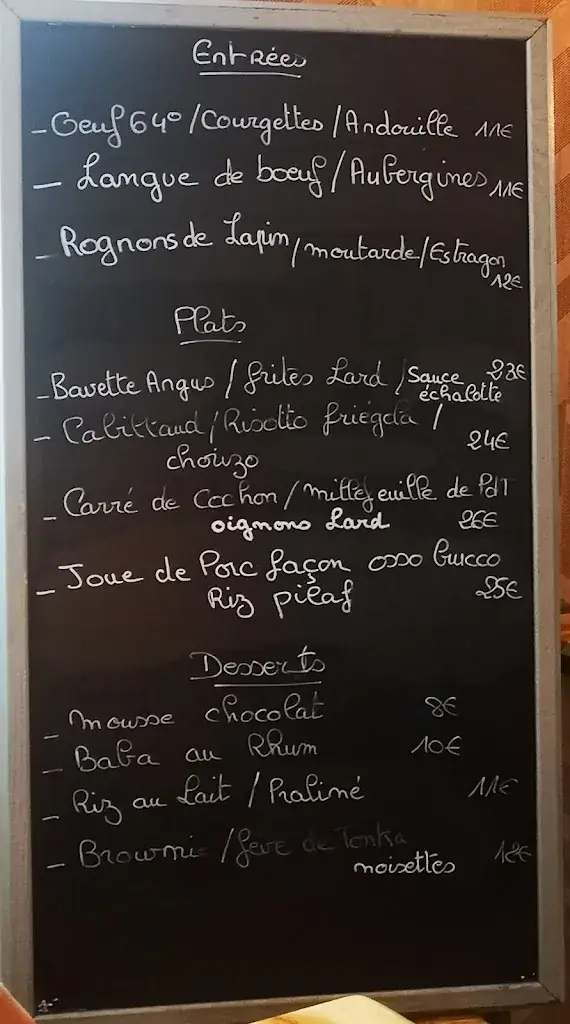 Entrées
- Oeuf 64° / Courgettes / Andouille 11€
- Langue de boeuf / Aubergines 11€
- Rognons de Lapin / moutarde / Estragon
12€
Plats
- Bavette Angus / frites Lard / Sauce 23€
échalotte
- Cabillaud / Risotto friégola /
24€
chorizo
- Carré de Cochon / millefeuille de PdT
oignons Lard 26€
- Joue de Porc façon osso bucco
Riz pilaf 25€
Desserts
- mousse chocolat 8€
- Baba au Rhum 10€
- Riz au Lait / Praliné 11€
- Brownie / fève de Tonka
noisettes 12€